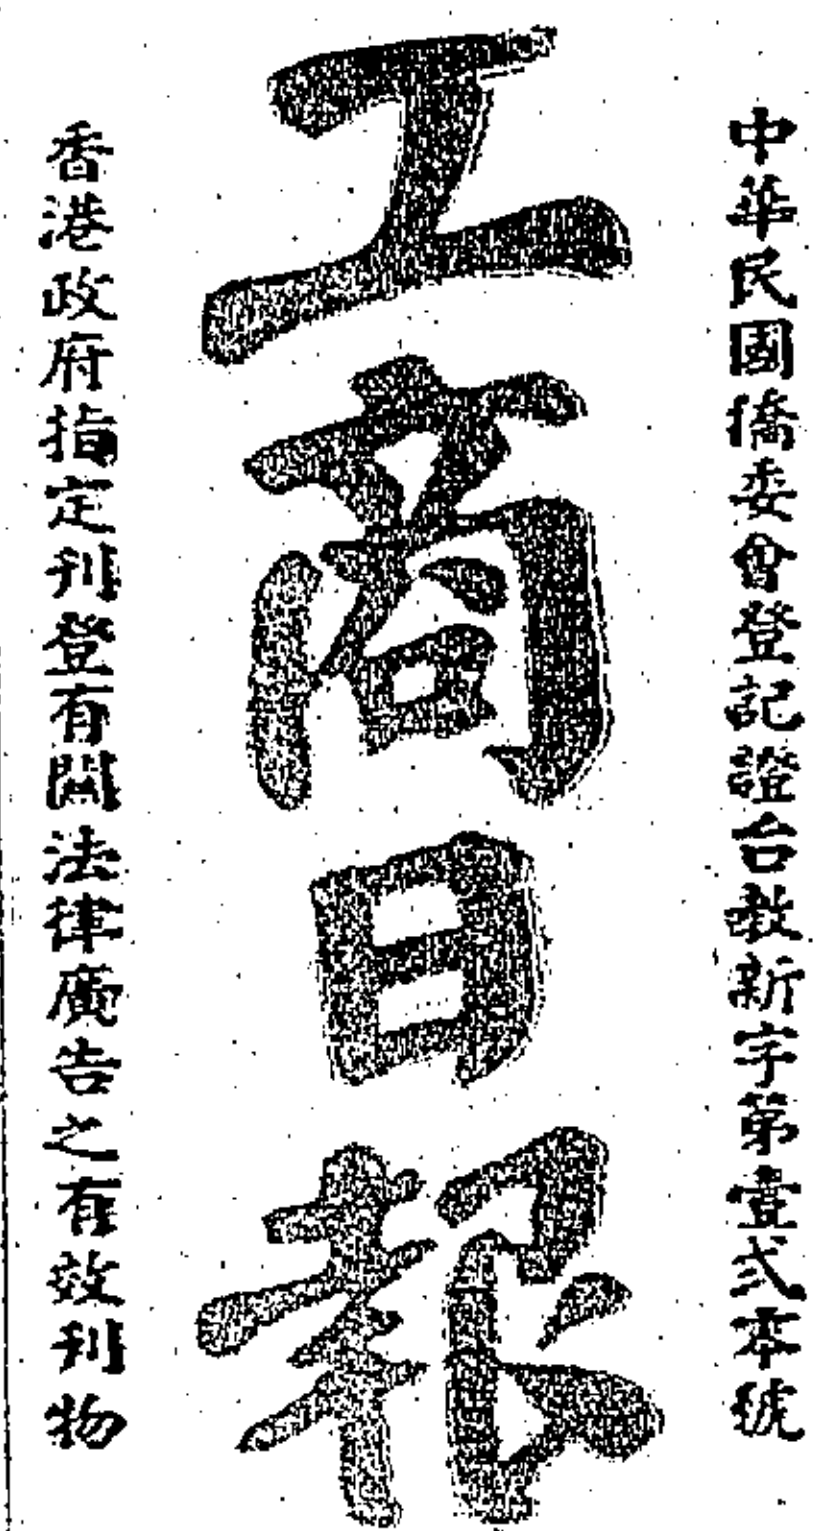 中華民國僑委會登記證台教新字第壹弍號
工商日報
香港政府指定刊登有關法律廣告之有效刊物